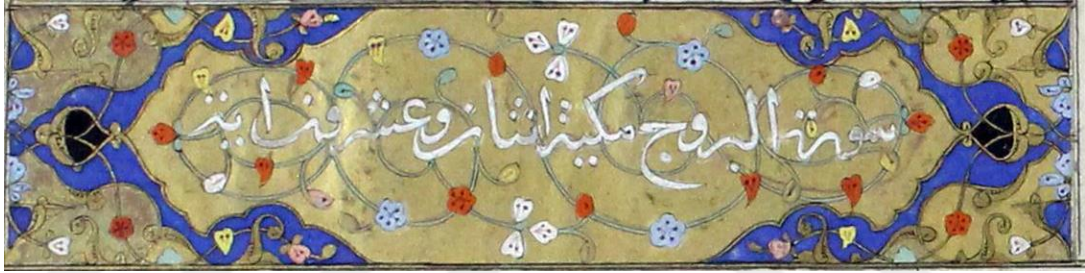 سورة البروج مكية اثنان وعشرون اية